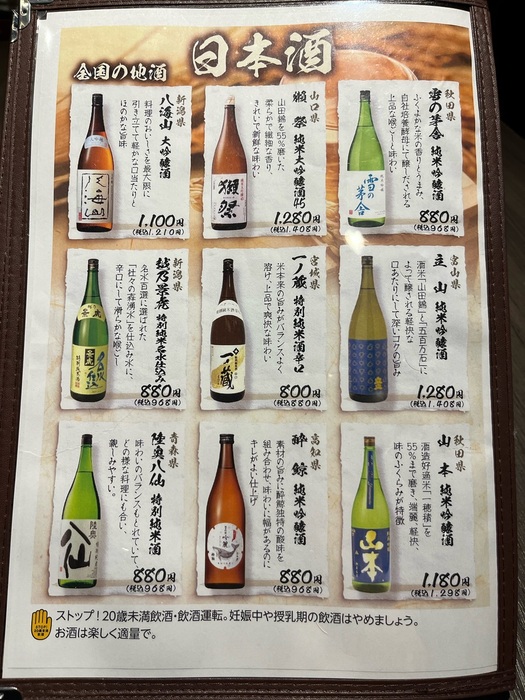 日本酒
全国の地酒
秋田県
雪の茅舎 純米吟醸酒
ふくよかな米の香りとうまみ、
自社培養酵母にて醸しだされる
上品な喉ごしと味わい
雪の茅舎
880円
(税込968円)
山口県
獺祭 純米大吟醸酒45
山田錦を55%磨いた
柔らかで繊細な香り、
きれいで新鮮な味わい
獺祭
1,280円
(税込1,408円)
新潟県
八海山 大吟醸酒
料理のおいしさを最大限に
引き立てて軽かな口当たりと
ほのかな旨味
八海山
1,100円
(税込1,210円)
富山県
立山 純米吟醸酒
酒米「山田錦」と「五百万石」に
よって醸される軽快な
口あたりにして深いコクの旨み
1,280円
(税込1,408円)
宮城県
一ノ蔵 特別純米酒辛口
米本来の旨味がバランスよく
溶けて上品で爽快な味わい
一ノ蔵
800円
(税込880円)
新潟県
越乃景虎 特別純米名水仕込み
名水百選に選ばれた
「杜々の森湧水」を仕込み水に、
辛口にして滑らかな喉ごし
景虎
名水仕込
880円
(税込968円)
秋田県
山本 純米吟醸酒
酒造好適米「一穂積」を
55%まで磨き、端麗、軽快、
味のふくらみが特徴
山本
1,180円
(税込1,298円)
高知県
酔鯨 純米吟醸酒
素材の旨みに酔鯨独特の酸味を
組み合わせ、味わいに幅があるのに
キレがよい仕上げ
880円
(税込968円)
青森県
陸奥八仙 特別純米酒
味わいのバランスもとれていて、
どの様な料理にも合い、
親しみやすい。
陸奥
八仙
880円
(税込968円)
ストップ!20歳未満飲酒・飲酒運転。妊娠中や授乳期の飲酒はやめましょう。
お酒は楽しく適量で。